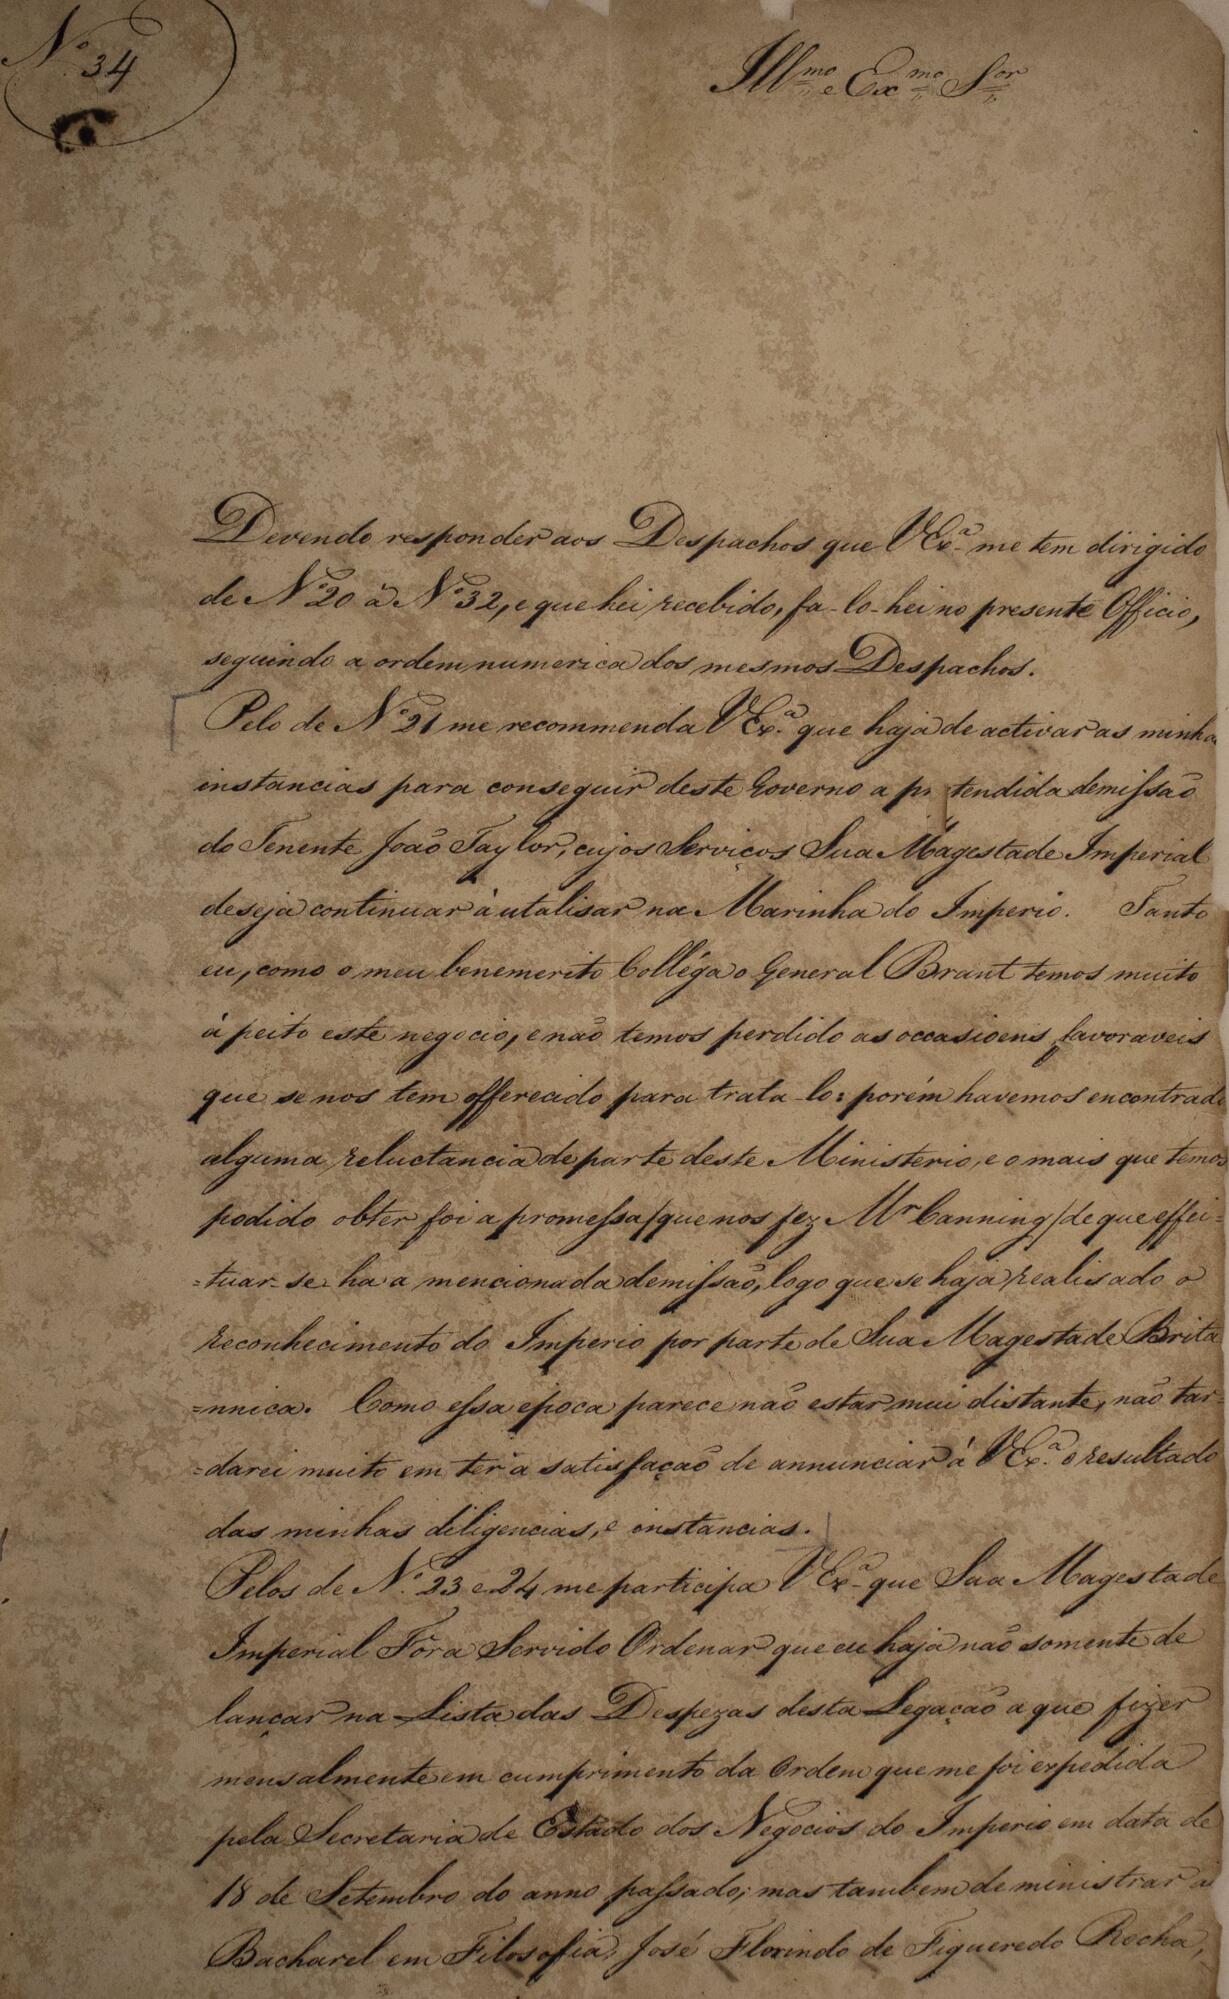 Nº 34
Illmo e Exmo Sor
Devendo responder aos Despachos que V Exª me tem dirigido
de Nº 20 à Nº 32, e que hei recebido, fa-lo-hei no presente Officio,
seguindo a ordem numerica dos mesmos Despachos.
Pelo de Nº 21 me recommenda V Exª que haja de activar as minha
instancias para conseguir deste Governo a p tendida demissão
do Tenente João Taylor, cujos Serviços Sua Magestade Imperial
deseja continuar à utalisar na Marinha do Imperio. Tanto
eu, como o meu benemerito Colléga o General Brant temos muito
à peito este negocio, e não temos perdido as occasioens favoraveis
que se nos tem offerecido para trata-lo: porém havemos encontrado
alguma reluctancia de parte deste Ministerio, e o mais que temos
podido obter foi a promessa (que nos fez Mr Canning) de que effei=
=tuar-se-ha a mencionada demissão, logo que se haja realisado o
reconhecimento do Imperio por parte de Sua Magestade Brita
=nnica. Como essa epoca parece não estar mui distante, não tar=
=darei muito em ter a satisfação de annunciar à V Exª o resultado
das minhas diligencias, e instancias.
Pelos de Nº 23 e 24 me participa V Exª que Sua Magestade
Imperial Fôra Servido Ordenar que eu haja não somente de
lançar na Lista das Despezas desta Legação a que fizer
mensalmente em cumprimento da Ordem que me foi expedida
pela Secretaria de Estado dos Negocios do Imperio em data de
18 de Setembro do anno passado; mas tambem de ministrar a
Bacharel em Filosofia, José Florindo de Figueredo Rocha,